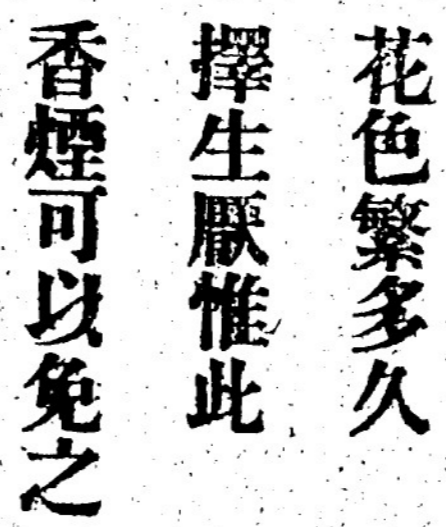 花色繁多久
擇生厭惟此
香煙可以免之